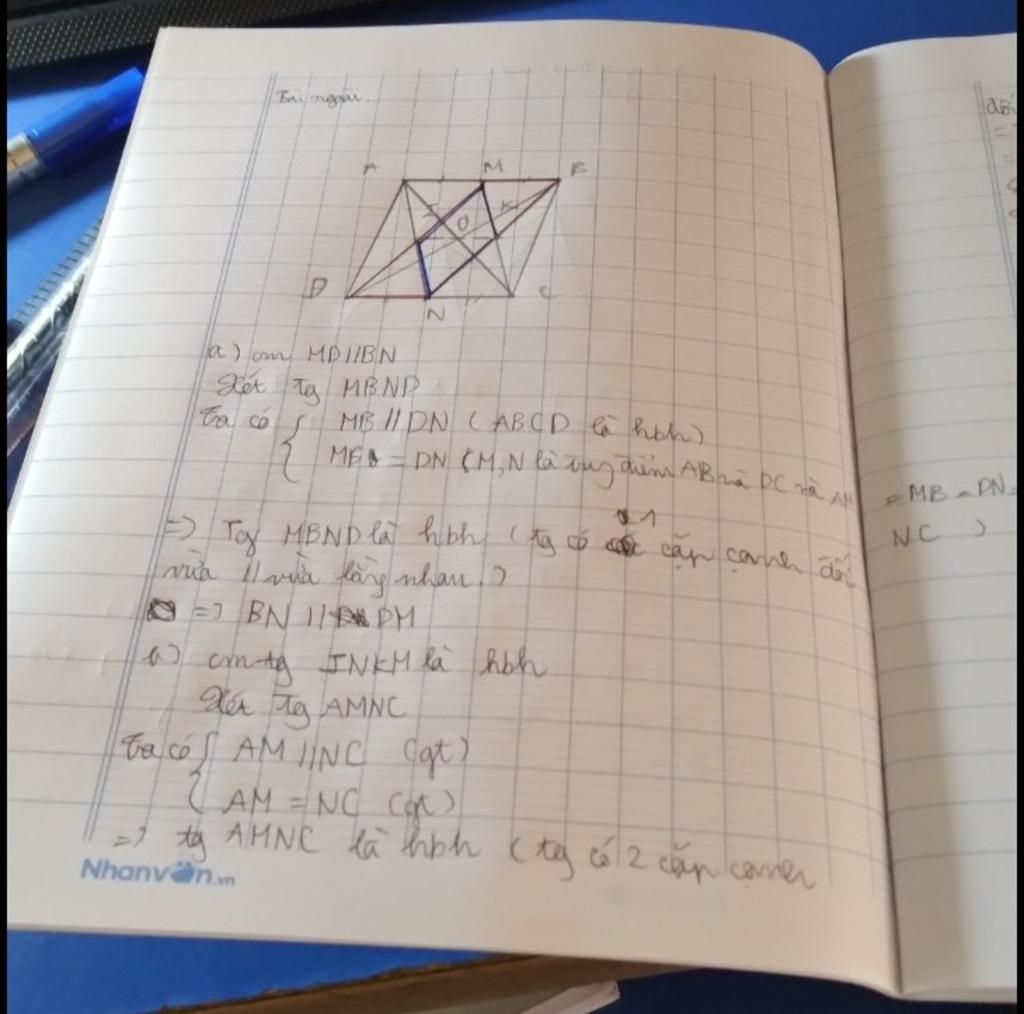 Bài ngoài.
A M B
I K
O
D N C
a) cm MD//BN
Xét tg MBND
Ta có { MB // DN ( ABCD là hbh)
MB = DN (M,N là trung điểm AB và DC và AM = MB = DN =
NC )
=> Tg MBND là hbh ( tg có 1 cặp cạnh đối
vừa // vừa bằng nhau.)
=> BN // DM
b) cm tg INKM là hbh
Xét tg AMNC
Ta có { AM // NC (gt)
AM = NC (gt)
=> tg AMNC là hbh ( tg có 2 cặp cạnh
Nhanvăn.vn
đối
=
=